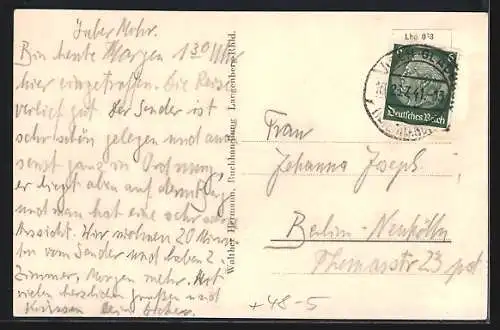 Lieber Mohr.
Bin heute Morgen 1 30 Uhr
hier eingetroffen. Die Reise
verlief gut. Der Sender ist
sehr schön gelegen und auch
sonst ganz in Ordnung,
er liegt oben auf
und man hat eine sehr
Aussicht. Wir wohnen 20 Minuten
vom Sender und haben 2
Zimmer, Morgen mehr. Mit
vielen herzlichen Grüßen und
Küssen Dein
Walther Hermann, Buchhandlung Langenberg-Rhld.
6 6
Deutsches Reich
Frau
Johanna Joseph
Berlin-Neukölln
Thomasstr 23 pt
+48-5